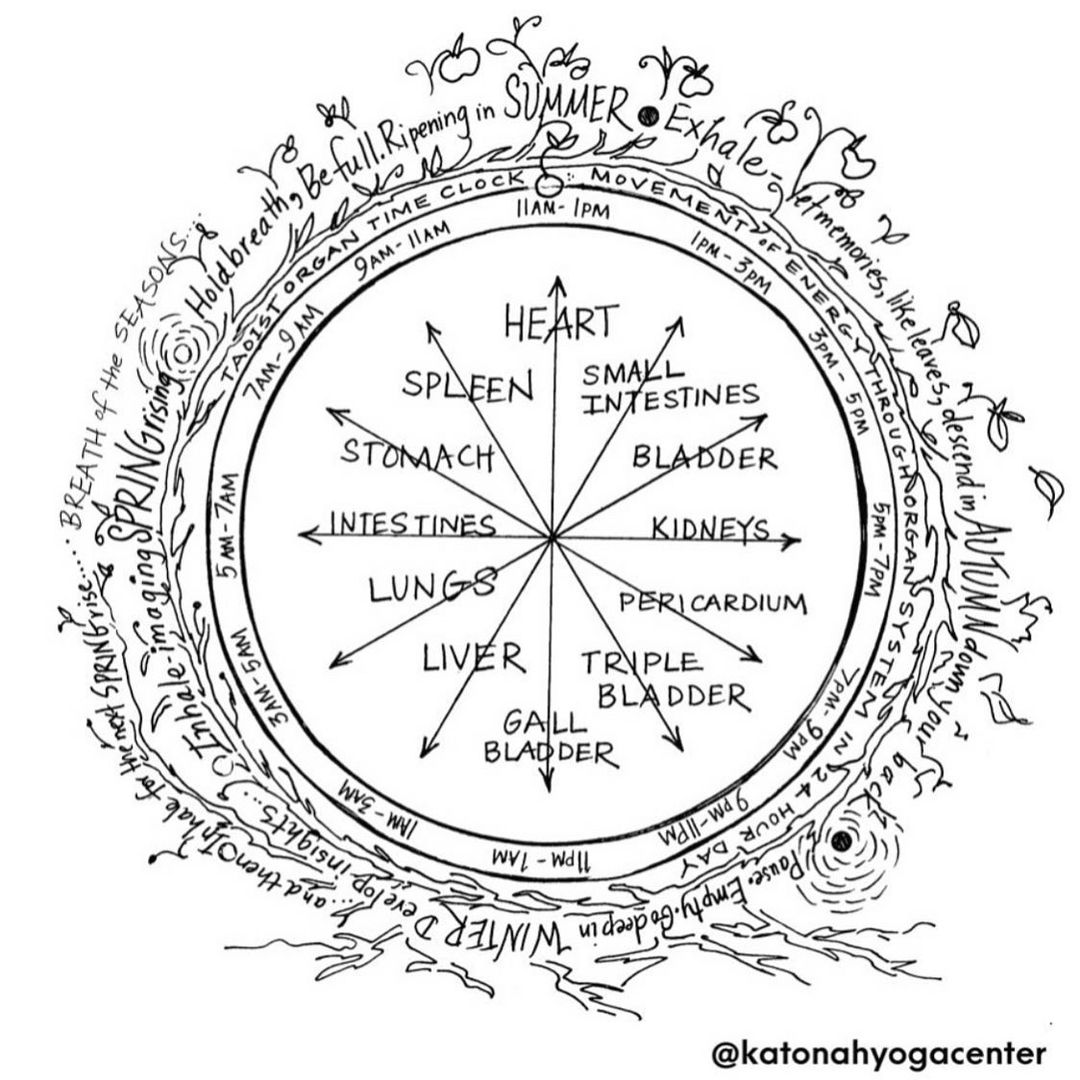 BREATH of the SEASONS...
Inhale-imaging SPRING rising
Hold breath, Be full. Ripening in SUMMER
Exhale-let memories, like leaves, descend in AUTUMN down your back
Pause. Empty. Go deep in WINTER Develop insights...
...and then Inhale for the next SPRING rise....
TAOIST ORGAN TIME CLOCK : MOVEMENT OF ENERGY THROUGH ORGAN SYSTEM IN 24 HOUR DAY
11AM-1PM
1PM-3PM
3PM-5PM
5PM-7PM
7PM-9PM
9PM-11PM
11PM-1AM
1AM-3AM
3AM-5AM
5AM-7AM
7AM-9AM
9AM-11AM
HEART
SMALL
INTESTINES
BLADDER
KIDNEYS
PERICARDIUM
TRIPLE
BLADDER
GALL
BLADDER
LIVER
LUNGS
INTESTINES
STOMACH
SPLEEN
@katonahyogacenter